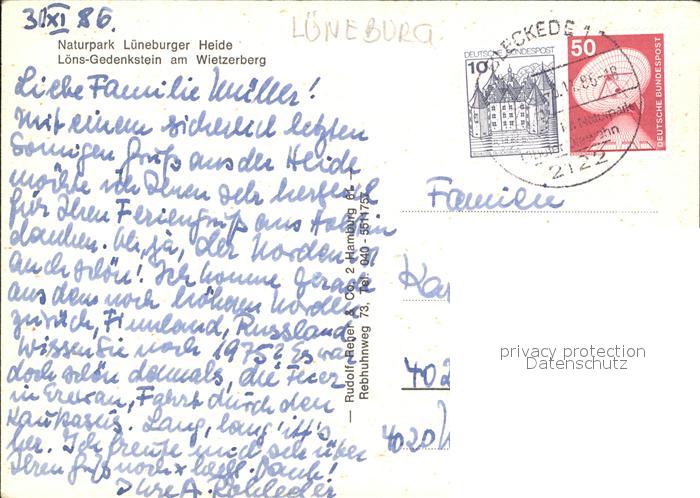 3.XI 86.
LÜNEBURG
Naturpark Lüneburger Heide
Löns-Gedenkstein am Wietzerberg
Liebe Familie Müller!
Mit einem sicherlich letzten
Sonnigen Gruß aus der Heide
möchte ich Ihnen sehr herzlich
für Ihren Feriengruß aus
danken. ja, der Norden ist
auch schön! Ich komme gerade
aus dem noch höheren Norden
zurück, Finnland, Russland
Wissen Sie noch 1975? Es war
doch schön damals, die Feier
in Erewan, Fahrt durch den
Kaukasus. Lang, lang ist's
her. Ich freute mich sehr über
Ihren Gruß noch x herzl. Dank!
Ihre A. Rohleder
— Rudolf Reher & Co., 2 Hamburg 61 —
Rebhuhnweg 73, Tel. 040 - 5511757
DEUTSCHE BUNDESPOST
10
50
DEUTSCHE BUNDESPOST
BLECKEDE 1
2122
Familie
402
4020
privacy protection
Datenschutz